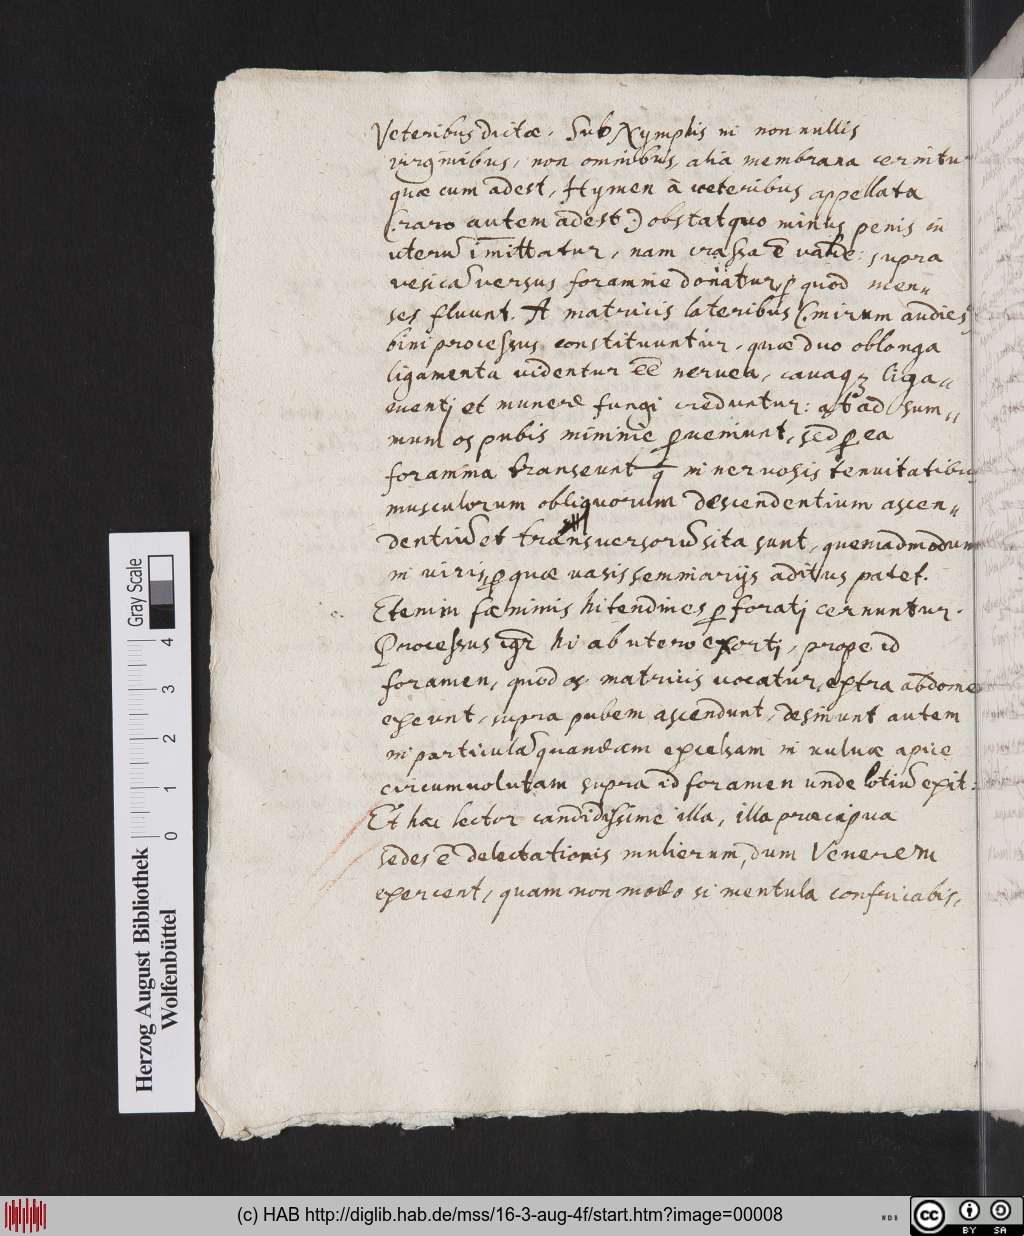 Veteribus dictæ. Sub Nymphis in non nullis
virginibus, non omnibus, alia membrana cernitu
quæ cum adest, Hymen à veteribus appellata
(raro autem adest) obstat quo minus penis in
uterũ imittatur, nam crassa ẽ valde: supra
vesicã versus foramine donatur, ꝑ quod men„
ses fluunt. A matricis lateribus (mirum audies)
bini processus constituuntur, quæ duo oblonga
ligamenta videntur eẽ nervea, cavaqꝫ liga„
menti et munere fungi creduntur: at ad sum„
mum os pubis minime ꝑveniunt, sed ꝑ ea
foramina transeunt q̃ in nervosis tenuitatibu
musculorum obliquorum descendentium ascen„
dentiũ et transversoriũ sita sunt, quemadmodum
in viris, ꝑ quæ vasis seminarijs aditus patet.
Etenim fæminis hi tendines ꝑforati cernuntur.
Processus igr̃ hi ab utero exorti, prope id
foramen, quod os matricis vocatur, extra abdome
exeunt, supra pubem ascendunt, desinunt autem
in particulã quandam excelsam in vulvæ apice
circumvolutam supra id foramen unde lotiũ exit:
Et hæc lector candidissime illa, illa præcipua
sedes ẽ delectationis mulierum, dum Venerem
exercent, quam non modo si mentula confricabis,
Gray Scale
0 1 2 3 4
Herzog August Bibliothek
Wolfenbüttel
(c) HAB http://diglib.hab.de/mss/16-3-aug-4f/start.htm?image=00008
WDB
cc
BY SA